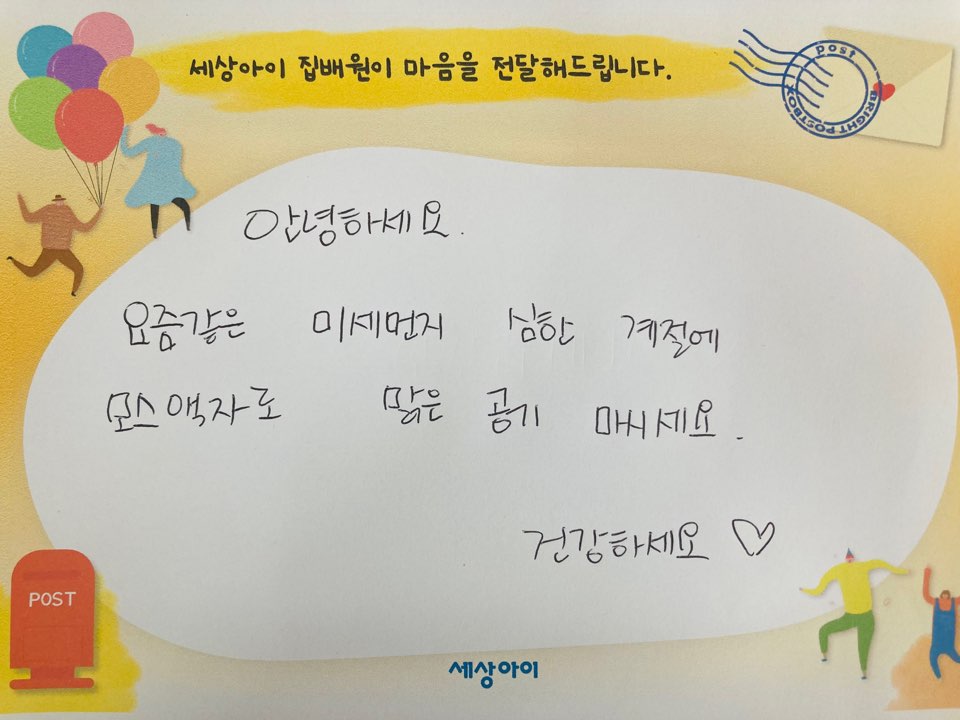 세상아이 집배원이 마음을 전달해드립니다.
post
BRIGHT POSTBOX
안녕하세요.
요즘같은 미세먼지 심한 계절에
모스액자로 맑은 공기 마시세요.
건강하세요 ♡
POST
세상아이